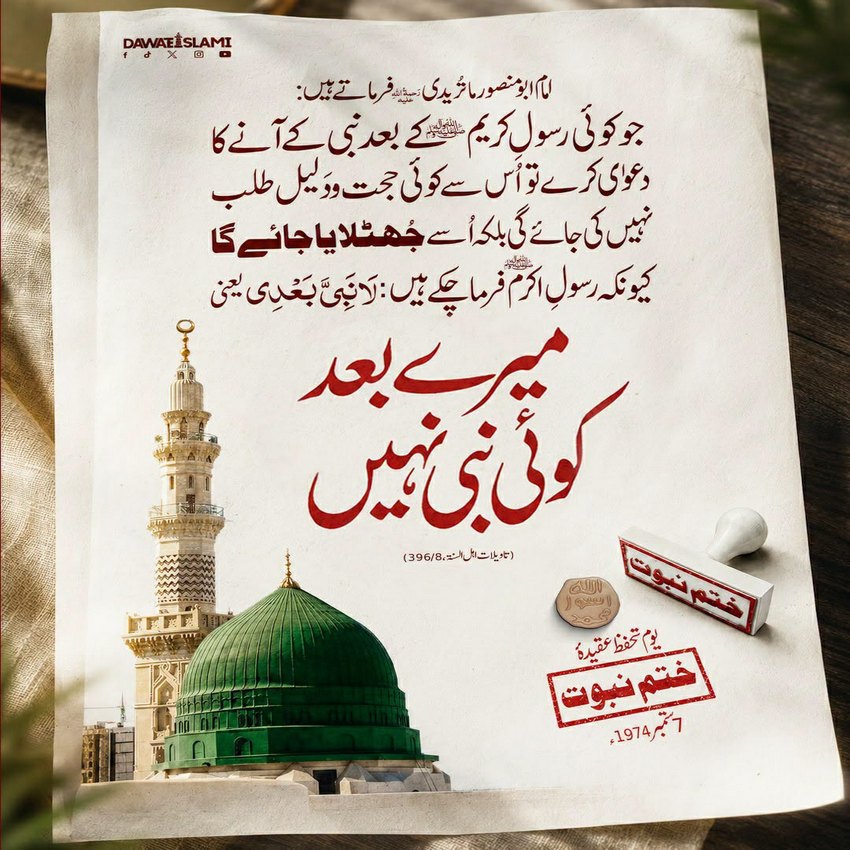 DAWATEISLAMI
امام ابو منصور ماتُریدی رَحمۃُ اللہ علیہ فرماتے ہیں:
جو کوئی رسولِ کریم ﷺ کے بعد نبی کے آنے کا
دعوٰی کرے تو اُس سے کوئی حجت و دَلیل طلب
نہیں کی جائے گی بلکہ اُسے جُھٹلایا جائے گا
کیونکہ رسولِ اکرم ﷺ فرما چکے ہیں: لَا نَبِیَّ بَعْدِی یعنی
میرے بعد
کوئی نبی نہیں
(تاویلات اہل السنۃ، 396/8)
ختم نبوت
اللہ
رسول
محمد
یوم تحفظ عقیدۂ
ختم نبوت
7 ستمبر 1974ء